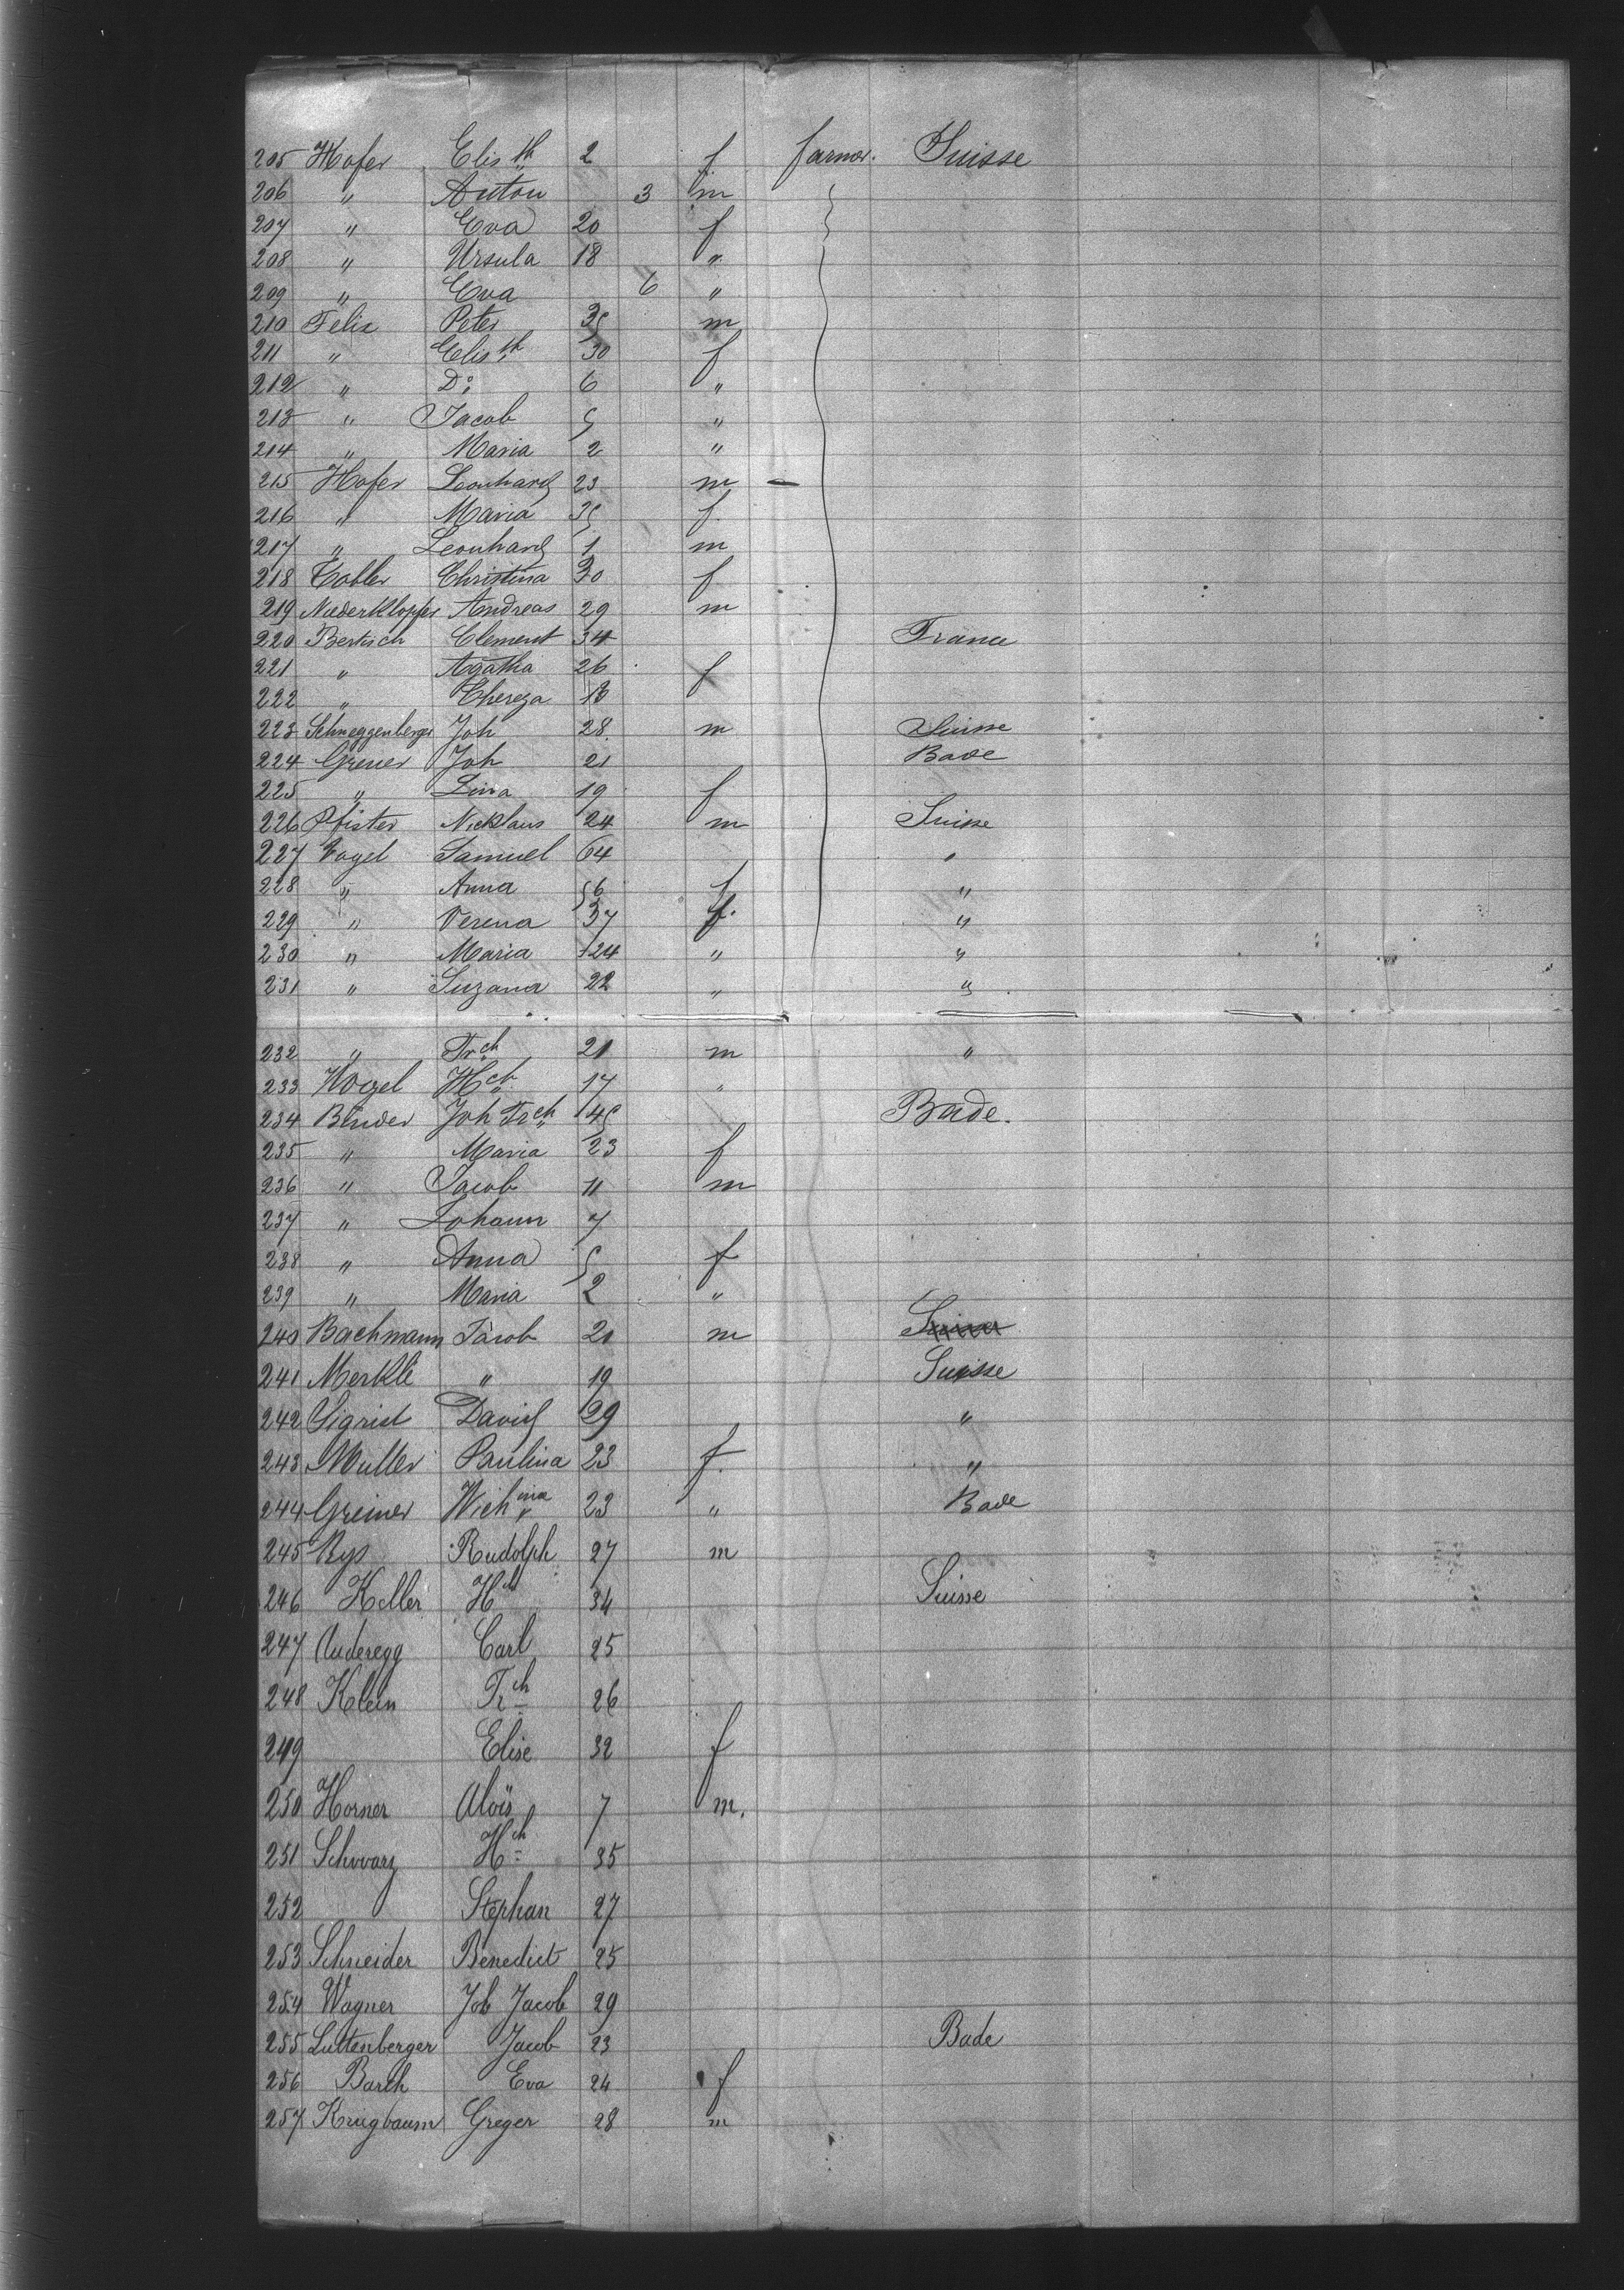 205 Hofer Elisth 2 f farmer. Suisse
206 " Anton 3 m
207 " Eva 20 f
208 " Ursula 18 "
209 " Eva 6 "
210 Felix Peter 35 m
211 " Elisth 30 f
212 " Do 6 "
213 " Jacob 5 "
214 " Maria 2 "
215 Hofer Leonhard 23 m
216 " Maria 35 f.
217 " Leonhard 1 m
218 Tobler Christina 30 f
219 Niederklopfer Andreas 29 m
220 Bertsch Clement 34 France
221 " Agatha 26 f
222 " Thereza 18
223 Schneggenberger Joh 28. m Suisse
224 Grener Joh 21 Bade
225 " Lina 19 f
226 Pfister Nicklaus 24 m Suisse
227 Vogel Samuel 64 "
228 " Anna 56 f "
229 " Verena 37 f. "
230 " Maria 24 " "
231 " Suzana 22 " "
232 " Frch 21 m "
233 Vogel Hch 17 "
234 Binder Joh Frch 45 Bade.
235 " Maria 23 f
236 " Jacob 11 m
237 " Johann 7
238 " Anna 5 f
239 " Maria 2 "
240 Bachmann Jacob 20 m
241 Merkli " 19 Suisse
242 Sigrist David 29 "
243 Muller Paulina 23 f. "
244 Greiner Wilhina 23 " Bade
245 Rys Rudolph 27 m
246 Keller Hch 34 Suisse
247 Anderegg Carl 25
248 Klein Frch 26
249 Elise 32 f
250 Horner Aloïs 7 m.
251 Schwarz Hch 35
252 Stephan 27
253 Schneider Benedict 25
254 Wagner Joh Jacob 29
255 Luttenberger Jacob 23 Bade
256 Barth Eva 24 f
257 Krugbaum Greger 28 m